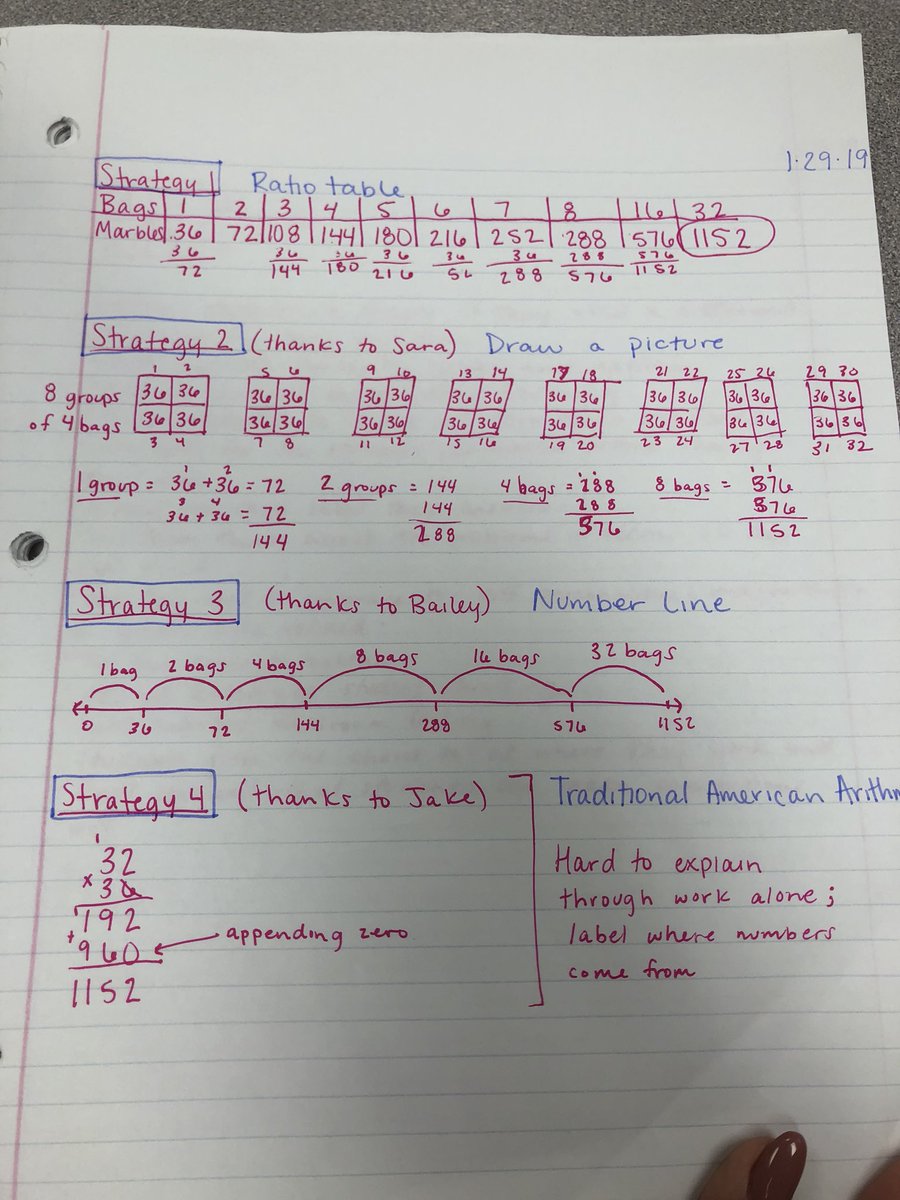 1·29·19
Strategy 1 Ratio table
Bags 1 2 3 4 5 6 7 8 16 32
Marbles 36 72 108 144 180 216 252 288 576 1152
36 36 36 36 36 36 288 576
72 144 180 216 52 288 576 1152
Strategy 2 (thanks to Sara) Draw a picture
1 2 5 6 9 10 13 14 17 18 21 22 25 26 29 30
8 groups 36 36 36 36 36 36 36 36 36 36 36 36 36 36 36 36
of 4 bags 36 36 36 36 36 36 36 36 36 36 36 36 36 36 36 36
3 4 7 8 11 12 15 16 19 20 23 24 27 28 31 32
1 2 1 1 1 1
1 group = 36 + 36 = 72 2 groups = 144 4 bags = 288 8 bags = 576
3 4
36 + 36 = 72 144 288 576
144 288 576 1152
Strategy 3 (thanks to Bailey) Number Line
1 bag 2 bags 4 bags 8 bags 16 bags 32 bags
0 36 72 144 288 576 1152
Strategy 4 (thanks to Jake) Traditional American Arithm
1
32
x 36
192
+ 960 appending zero
1152
Hard to explain
through work alone;
label where numbers
come from